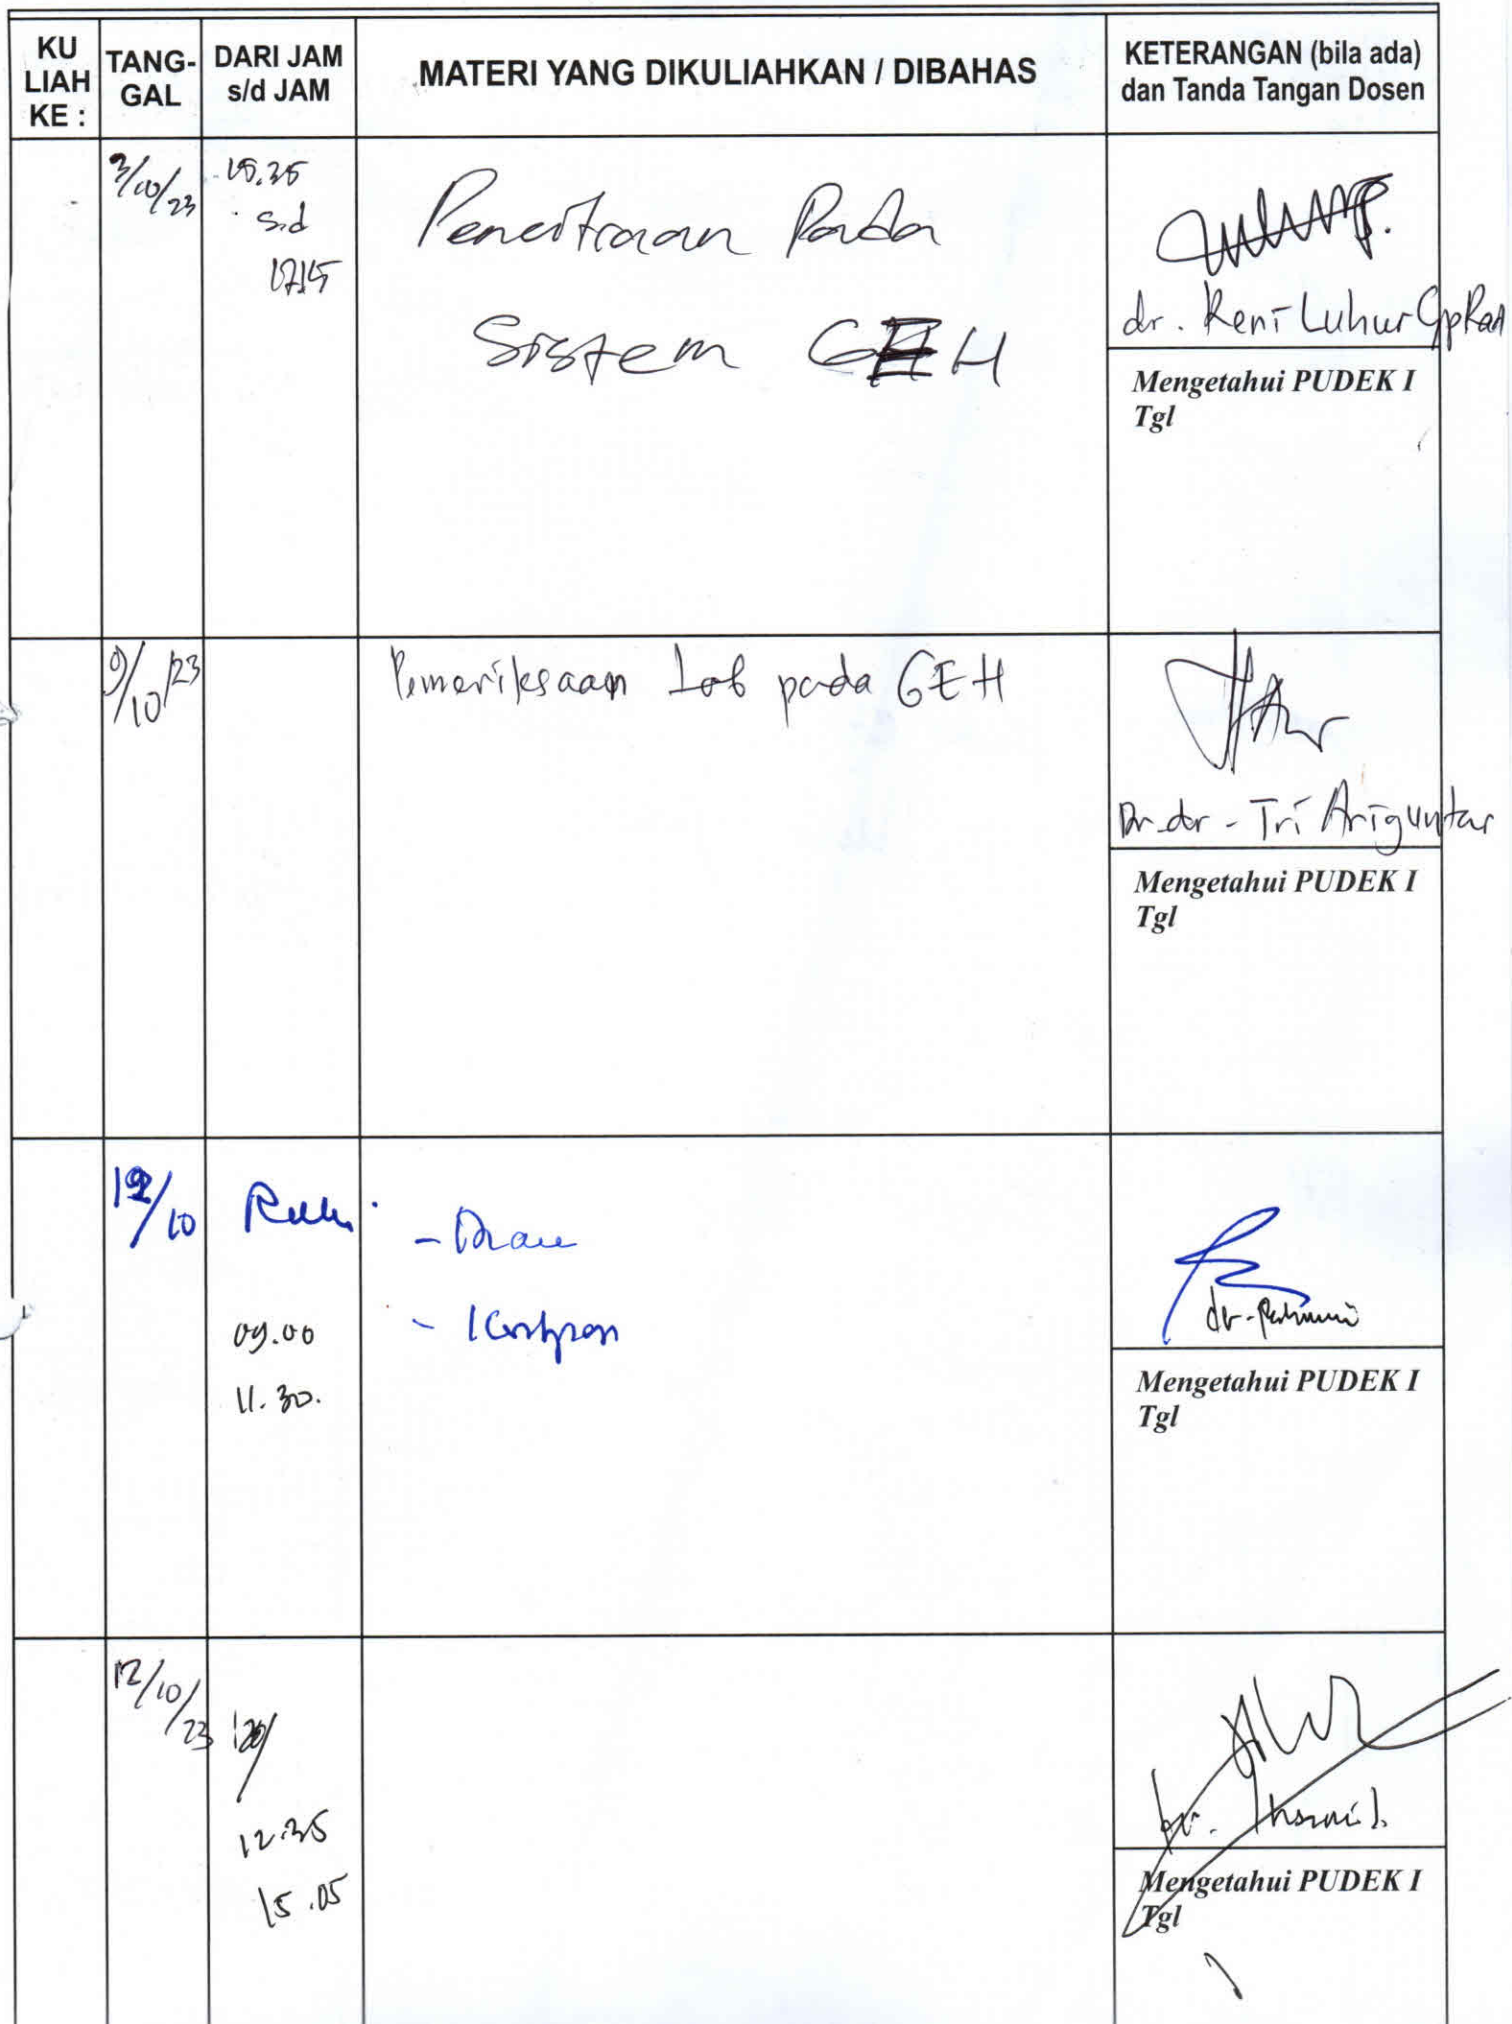 KU LIAH KE :
TANG-GAL
DARI JAM s/d JAM
MATERI YANG DIKULIAHKAN / DIBAHAS
KETERANGAN (bila ada) dan Tanda Tangan Dosen
3/10/23
15.35
s.d
17.15
Pencitraan Pada
Sistem GEH
dr. Reni Luhur
Mengetahui PUDEK I
Tgl
9/10/23
Pemeriksaan Lab pada GEH
Dr. dr - Tri Ariguntar
Mengetahui PUDEK I
Tgl
12/10
09.00
11.30.
- Diare
dr.
Mengetahui PUDEK I
Tgl
12/10/23
12.35
15.05
Mengetahui PUDEK I
Tgl